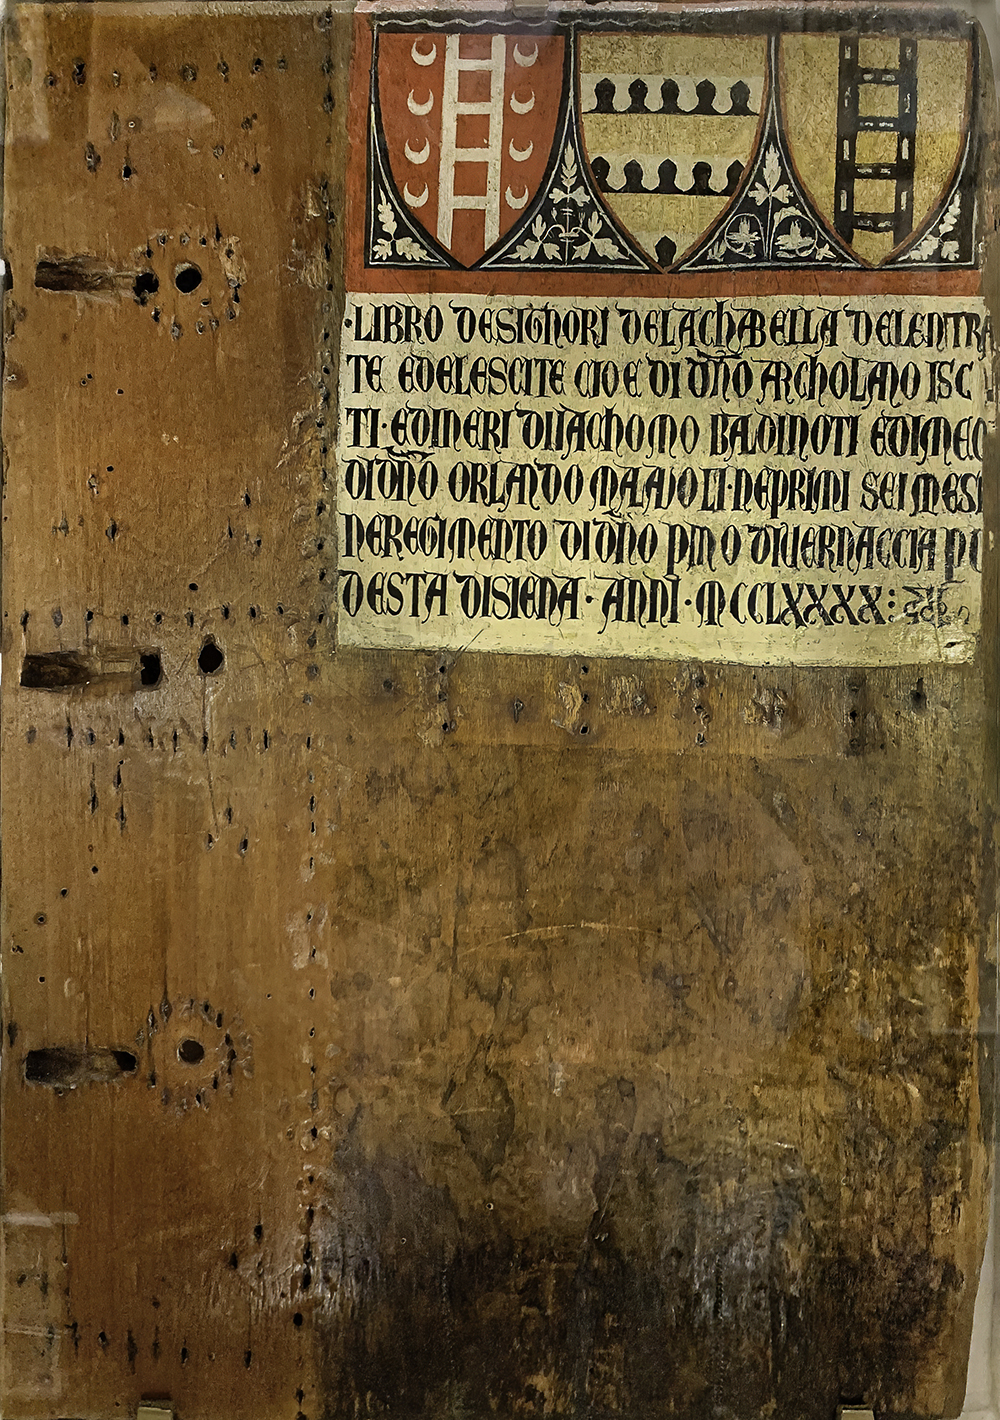 ·LIBRO DESIGNORI DELACHABELLA DELENTRA
TE EDELESCITE CIOE DI DÑO ARCHOLANO ISC
TI·EDINERI DIIACHOMO BALDINOTI EDIMEO
DIDÑO ORLANDO MALAVOLTI·NEPRIMI SEI MESI
NEREGIMENTO DI DÑO PINO DIVERNACCIA PO
DESTA DISIENA·ANNI·MCCLXXXX: